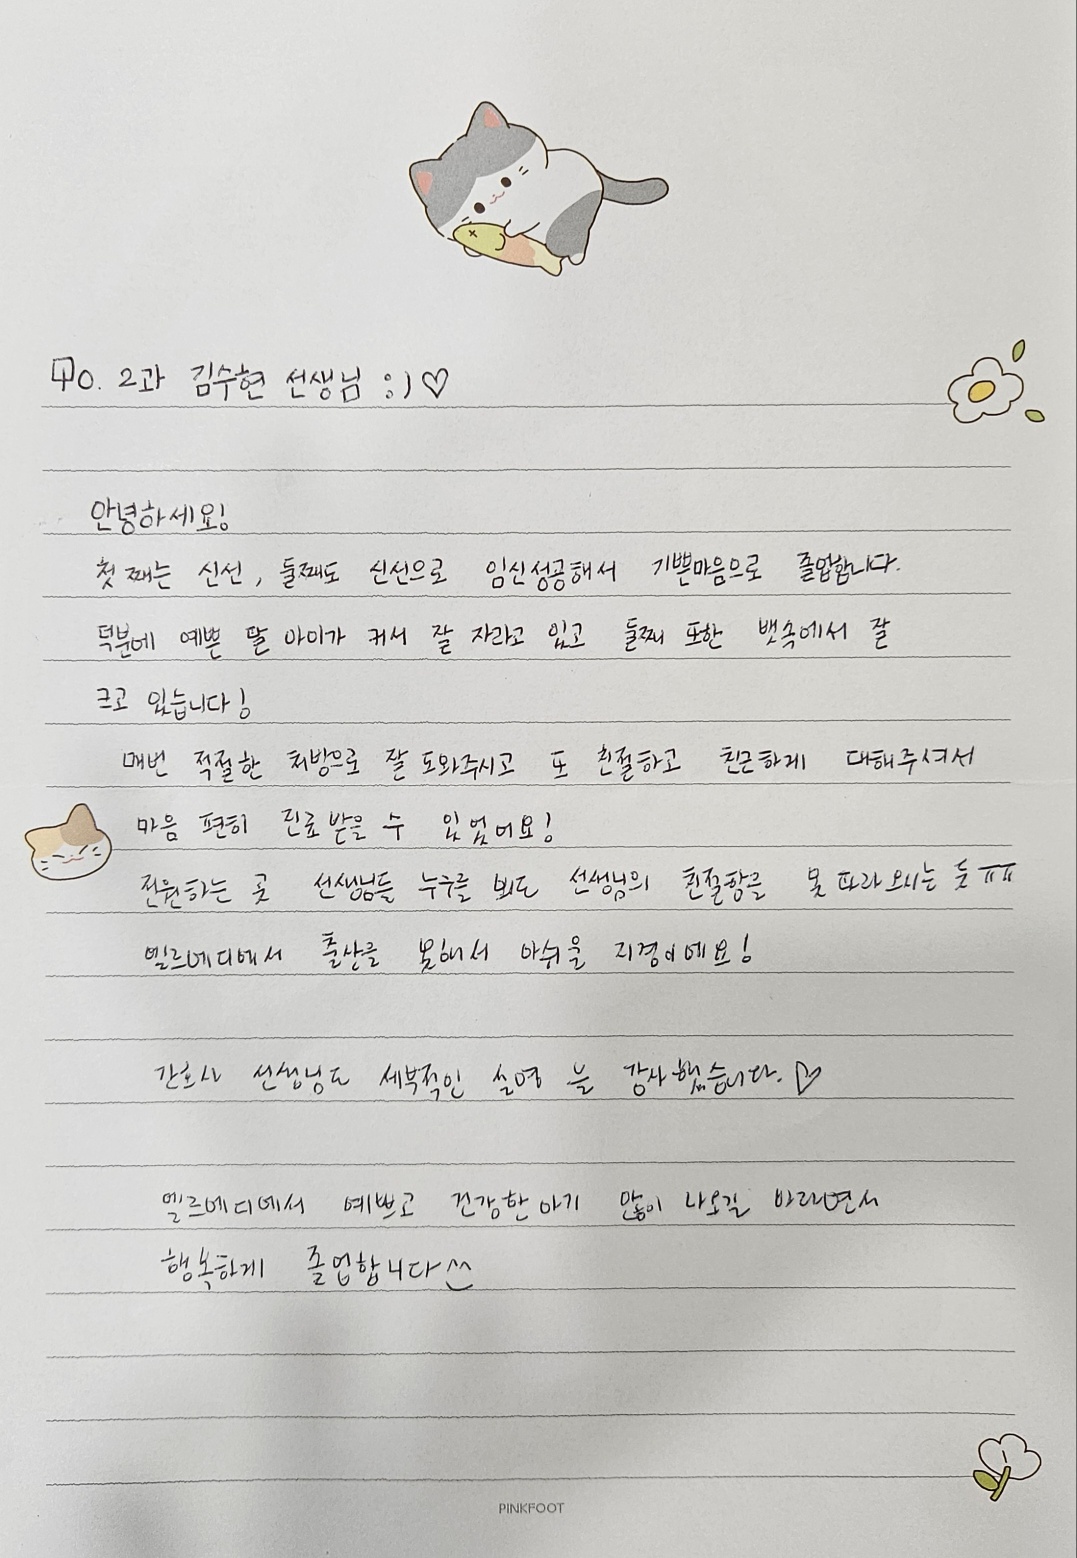 To. 2과 김수현 선생님 :)♡
안녕하세요!
첫째는 신선, 둘째도 신선으로 임신성공해서 기쁜마음으로 졸업합니다.
덕분에 예쁜 딸 아이가 커서 잘 자라고 있고 둘째 또한 뱃속에서 잘
크고 있습니다!
매번 적절한 처방으로 잘 도와주시고 또 친절하고 친근하게 대해주셔서
마음 편히 진료 받을 수 있었어요!
전원하는 곳 선생님들 누구를 봐도 선생님의 친절함을 못 따라 오시는 듯 ㅠㅠ
엘르메디에서 출산을 못해서 아쉬울 지경이에요!
간호사 선생님도 세부적인 설명 늘 감사했습니다. ♡
엘르메디에서 예쁘고 건강한 아기 많이 나오길 바라면서
행복하게 졸업합니다^^
PINKFOOT